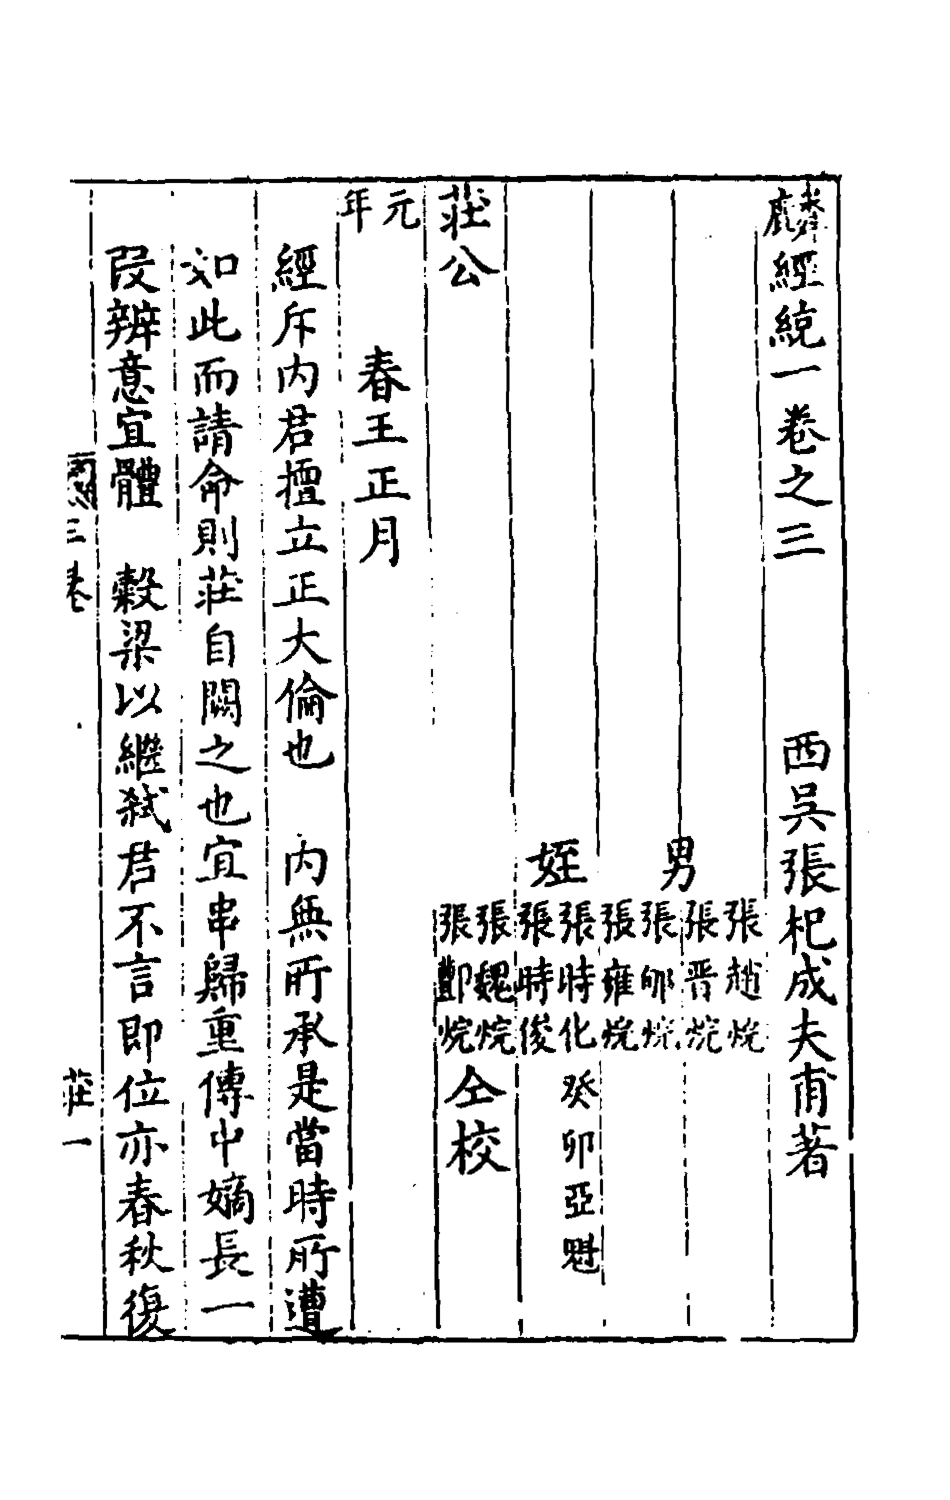 麟經統一卷之三
西吳張杞成夫甫著
男
張趙烷
張晋烷
張邨烷
張雍烷
姪
張時化 癸卯亞魁
張時俊
張魏烷
張鄷烷
仝校
莊公
元年
春王正月
經斥内君擅立正大倫也 内無所承是當時所遭
如此而請命則莊自闕之也宜串歸重傳中嫡長一
段辨意宜體 榖梁以繼弑君不言即位亦春秋復
三卷
莊一